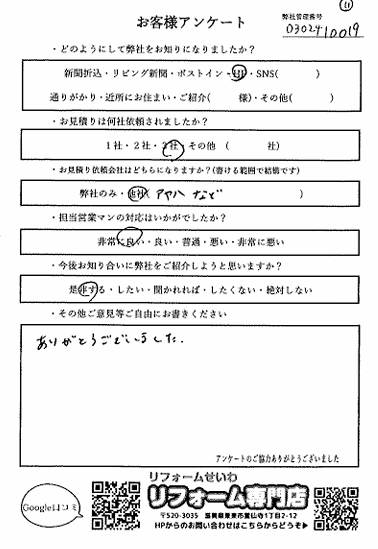 ⑪
お客様アンケート
弊社管理番号
0302410019
・どのようにして弊社をお知りになりましたか?
新聞折込・リビング新聞・ポストイン・HP・SNS( )
通りがかり・近所にお住まい・ご紹介( 様)・その他( )
・お見積りは何社依頼されましたか?
1社・2社・3社・その他 ( 社)
・お見積り依頼会社はどちらになりますか?(書ける範囲で結構です)
弊社のみ・他社( アヤハ など )
・担当営業マンの対応はいかがでしたか?
非常に良い・良い・普通・悪い・非常に悪い
・今後お知り合いに弊社をご紹介しようと思いますか?
是非する・したい・聞かれれば・したくない・絶対しない
・その他ご意見等ご自由にお書きください
ありがとうございました.
アンケートのご協力ありがとうございました
Google口コミ
リフォームせいわ
リフォーム専門店
〒520-3035 滋賀県栗東市霊仙寺1丁目2-12
HPからのお問い合わせはこちらからどうぞ▶